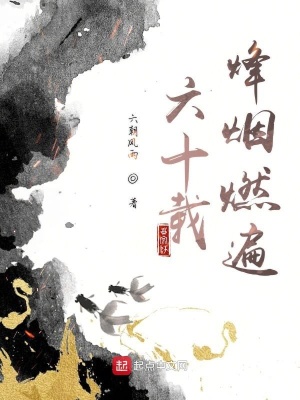 烽烟燃遍
六十载
六朝风雨
◎
著
起点中文网